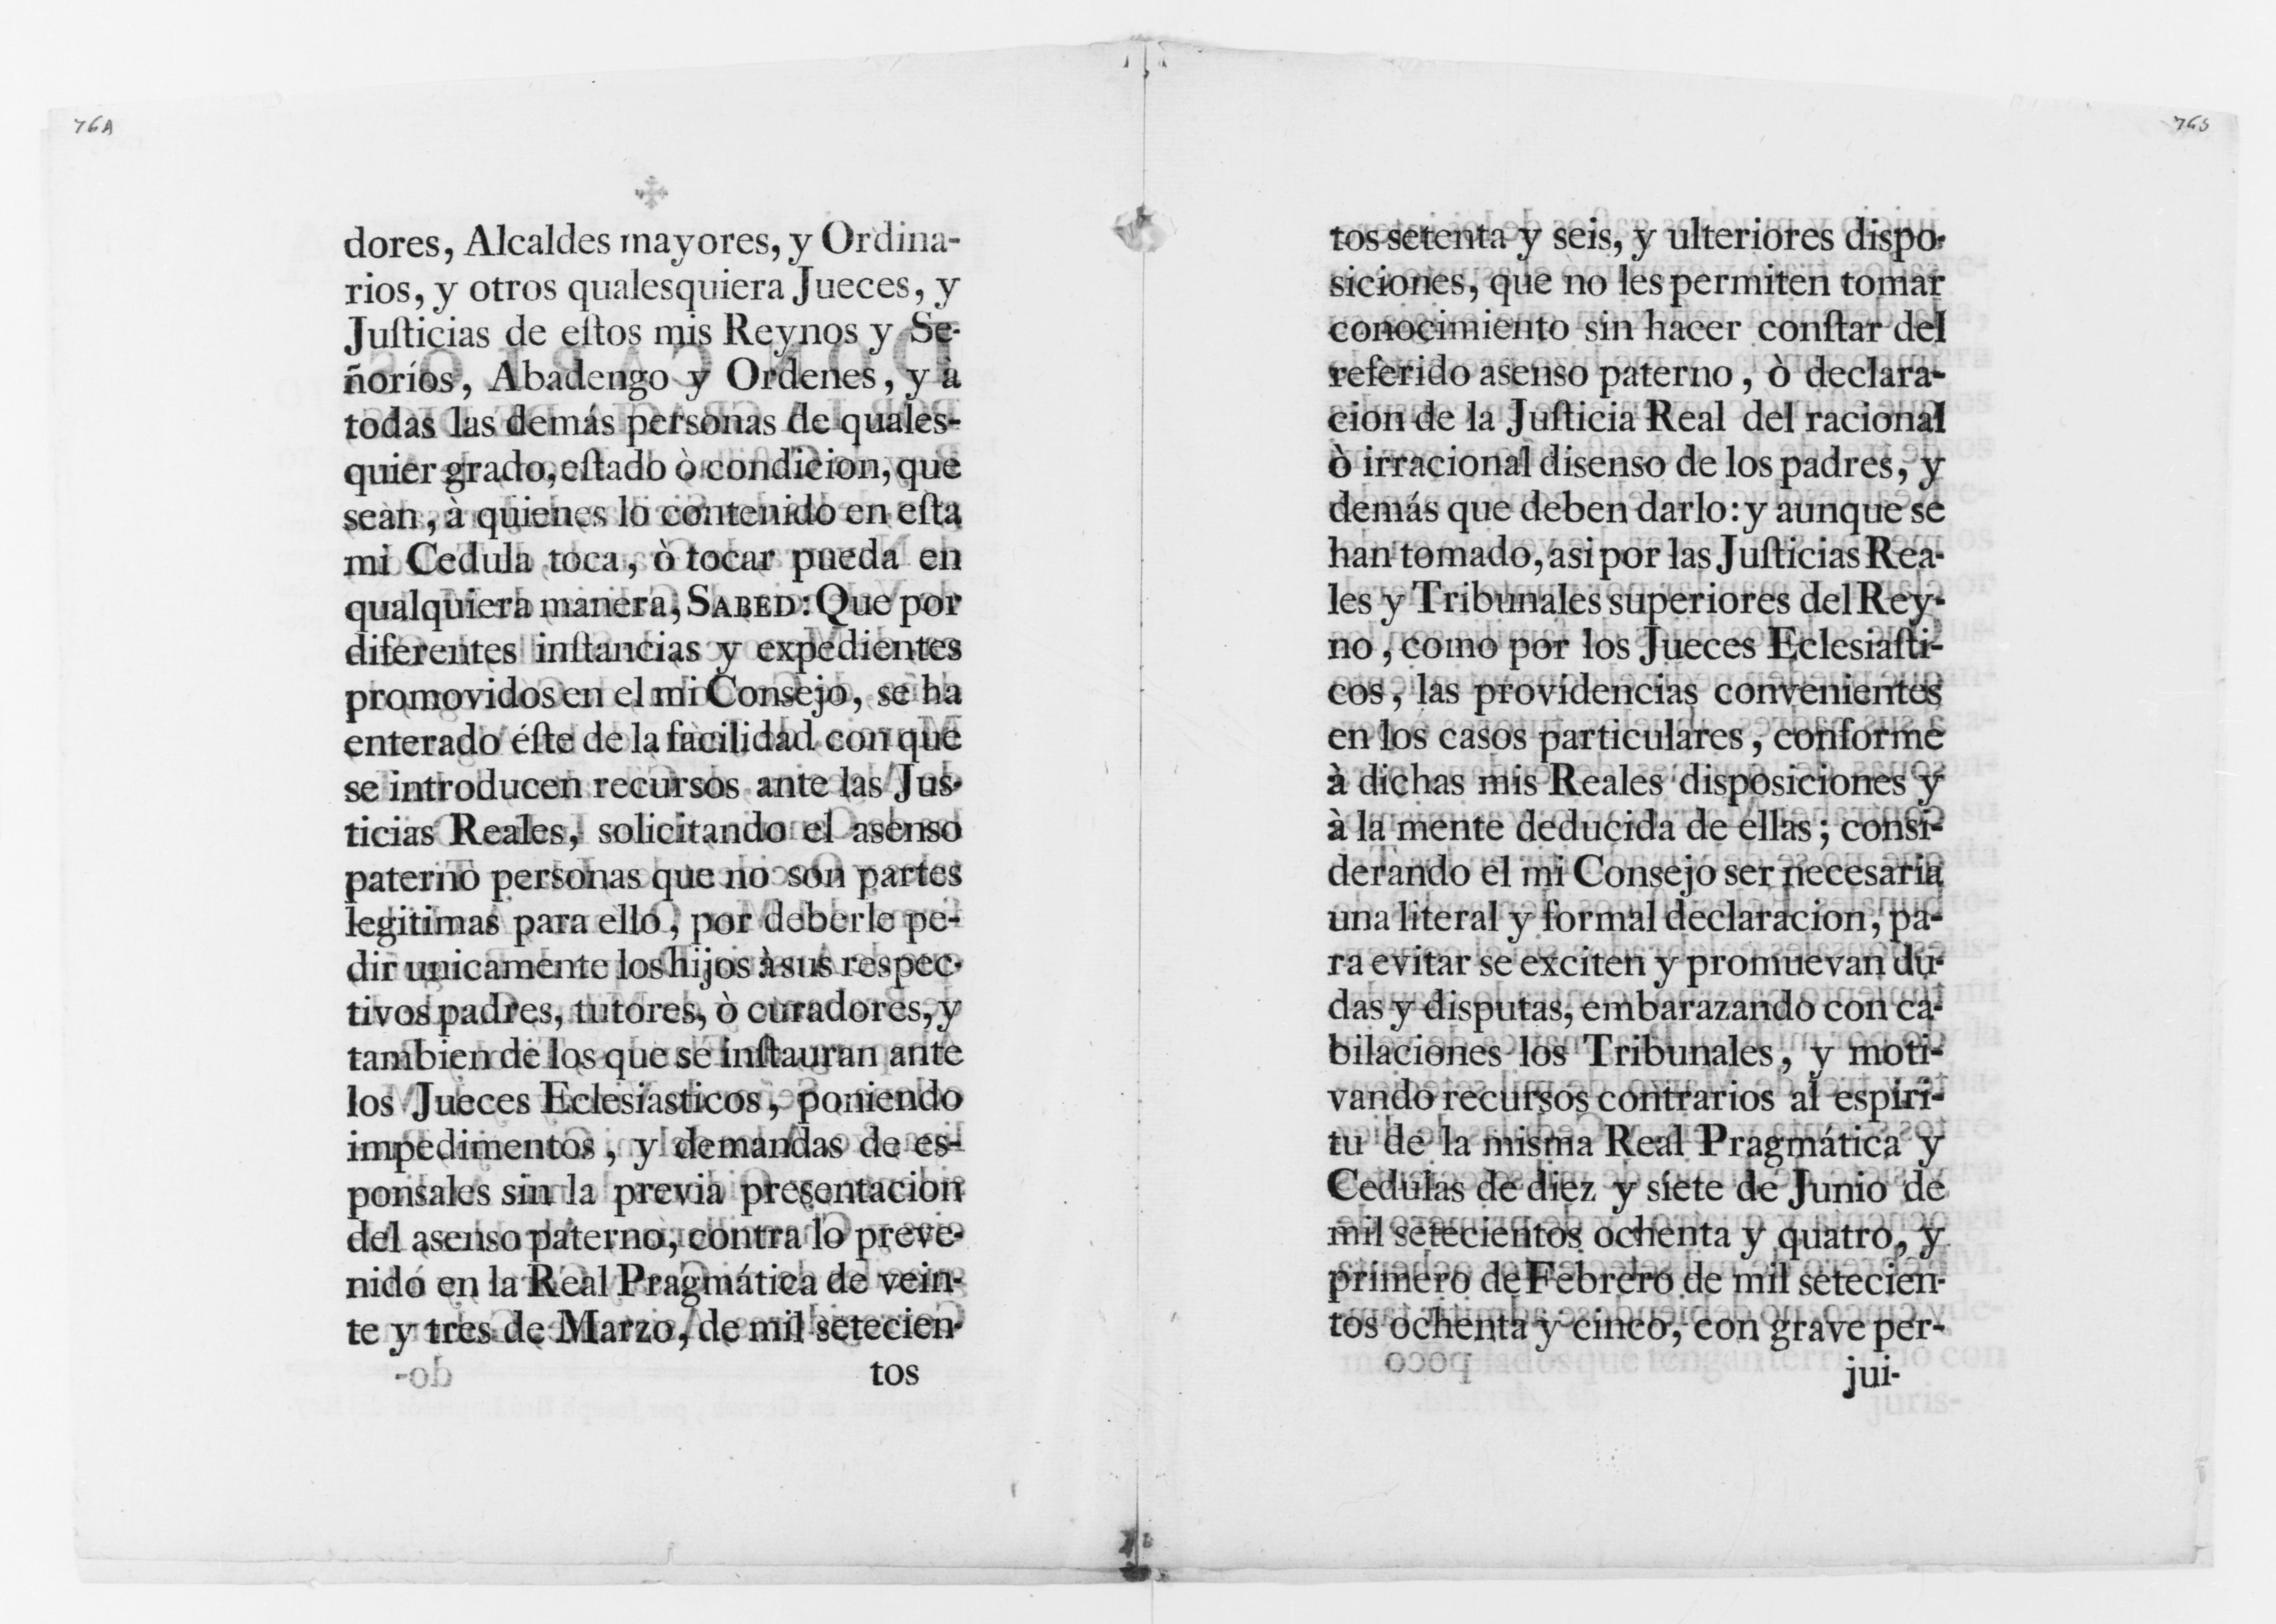 76A
dores, Alcaldes mayores, y Ordina-
rios, y otros qualesquiera Jueces, y
Juſticias de eſtos mis Reynos y Se-
ñoríos, Abadengo y Ordenes, y à
todas las demás personas de quales-
quier grado, eſtado ò condicion, que
seàn, à quienes lo contenido en eſta
mi Cedula toca, ò tocar pueda en
qualquiera manera, SABED: Que por
diferentes inſtancias y expedientes
promovidos en el mi Consejo, se ha
enterado éſte de la facilidad con que
se introducen recursos ante las Jus-
ticias Reales, solicitando el asenso
paterno personas que no son partes
legitimas para ello, por deberle pe-
dir unicamente los hijos à sus respec-
tivos padres, tutores, ò curadores, y
tambien de los que se inſtauran ante
los Jueces Eclesiasticos, poniendo
impedimentos, y demandas de es-
ponsales sin la previa presentacion
del asenso paterno, contra lo preve-
nido en la Real Pragmática de vein-
te y tres de Marzo, de mil setecien-
tos
765
tos setenta y seis, y ulteriores dispo-
siciones, que no les permiten tomar
conocimiento sin hacer conſtar del
referido asenso paterno, ò declara-
cion de la Juſticia Real del racional
ò irracional disenso de los padres, y
demás que deben darlo: y aunque se
han tomado, asi por las Juſticias Rea-
les y Tribunales superiores del Rey-
no, como por los Jueces Eclesiaſti-
cos, las providencias convenientes
en los casos particulares, conforme
à dichas mis Reales disposiciones y
à la mente deducida de ellas; consi-
derando el mi Consejo ser necesaria
una literal y formal declaracion, pa-
ra evitar se exciten y promuevan du-
das y disputas, embarazando con ca-
bilaciones los Tribunales, y moti-
vando recursos contrarios al espiri-
tu de la misma Real Pragmática y
Cedulas de diez y siete de Junio de
mil setecientos ochenta y quatro, y
primero de Febrero de mil setecien-
tos ochenta y cinco, con grave per-
jui-